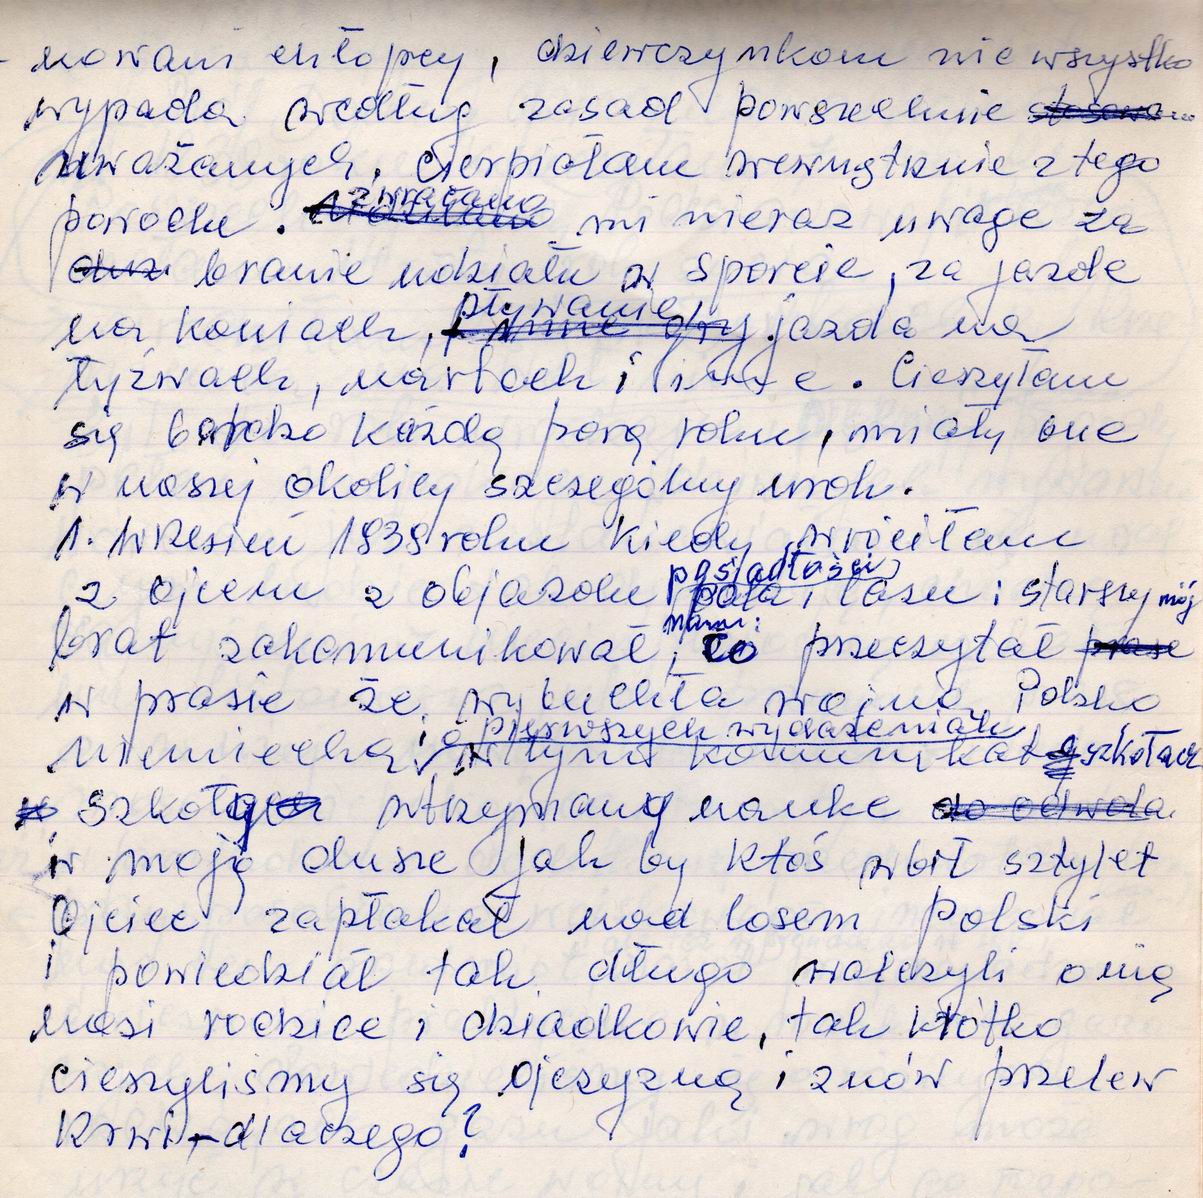 mowani chłopcy, dziewczynkom nie wszystko
wypada według zasad powszechnie
uważanych. Cierpiałam wewnętrznie z tego
powodu. zwracano mi nieraz uwage za
branie udziału w sporcie, za jazde
na koniach, pływanie, jazda na
łyżwach, nartach i inne. Cieszyłam
się bardzo każdą porą roku, miały one
w naszej okolicy szczególny urok.
1. Wrzesień 1939 roku kiedy wróciłam
z ojcem z objazdu posiadłości
pola i lasu i starszy mój
nam:
brat zakomunikował, co przeczytał
w prasie że wybuchła wojna Polsko
niemiecka i o pierwszych wydażeniach
w tym komunikat szkołach
szkoły wtrzymany nauke do odwoła
w moją dusze jak by ktoś wbił sztylet
Ojciec zapłakał nad losem Polski
i powiedział tak długo walczyli o nią
nasi rodzice i dziadkowie, tak krótko
cieszyliśmy się ojczyzną i znów przelew
krwi - dlaczego?